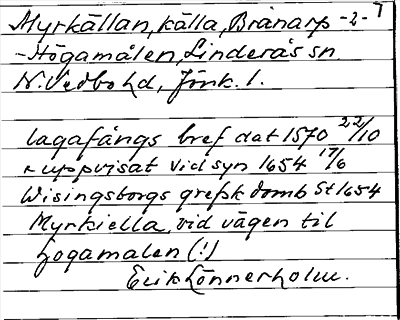 Myrkällan, källa, Brånarp -2-7
-Högamålen, Linderås sn.
N. Vedbo hd, Jönk. l.
lagafångs bref dat 1570 22/10
& uppvisat vid syn 1654 17/6
Wisingsborgs grefsk domb St 1654
Myrkiella vid vägen til
hogamalen (!)
Erik Lönnerholm.